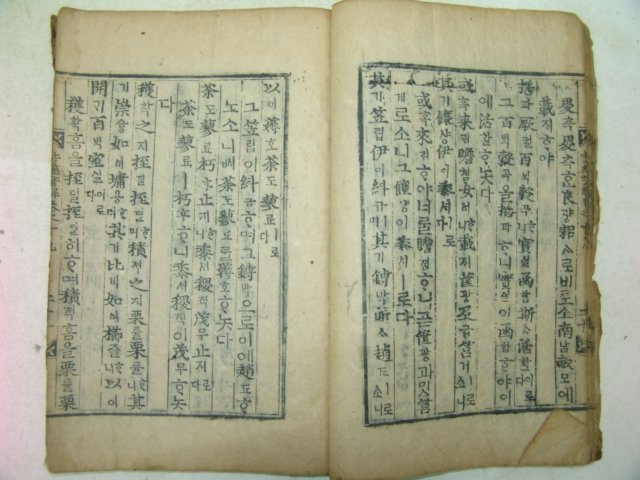 畟측畟측ᄒᆞᆫ良량耜ᄉᆞ로비로소南남畝모에
載ᄌᆡᄒᆞ야
播파厥궐百ᄇᆡᆨ穀곡ᄒᆞ니實실函함斯ᄉᆞ活활이로다
그百ᄇᆡᆨ穀곡을播파ᄒᆞ니實실이函함ᄒᆞ야이
에活활ᄒᆞ놋다
或혹來ᄅᆡ瞻쳠女여ᄒᆞ니載ᄌᆡ筐광及급筥거ㅣ로소니
其기饟샹伊이黍셔ㅣ로다
或혹來ᄅᆡᄒᆞ야너를瞻쳠ᄒᆞ니筐광과밋筥
거로소니그饟샹이黍셔ㅣ로다
其기笠립伊이糾규ㅣ며其기鎛박斯ᄉᆞ趙됴ㅣ로소니
以이薅호荼도蓼료ㅣ로다
그笠립이糾규ᄒᆞ며그鎛박으로이에趙됴ᄒᆞ
노소니ᄡᅥ荼도蓼료를薅호ᄒᆞ놋다
荼도蓼료朽후止지ᄒᆞ니黍셔稷직茂무止지로다
荼도蓼료ㅣ朽후ᄒᆞ니黍셔稷직이茂무ᄒᆞ놋
다
穫확之지挃딜挃딜ᄒᆞ며積젹之지栗률栗률ᄒᆞ니其
기崇슝如여墉용ᄒᆞ며其기比비如여櫛즐ᄒᆞ니以이
開ᄀᆡ百ᄇᆡᆨ室실이로다
穫확홈을挃딜挃딜히ᄒᆞ며積젹홈을栗률栗